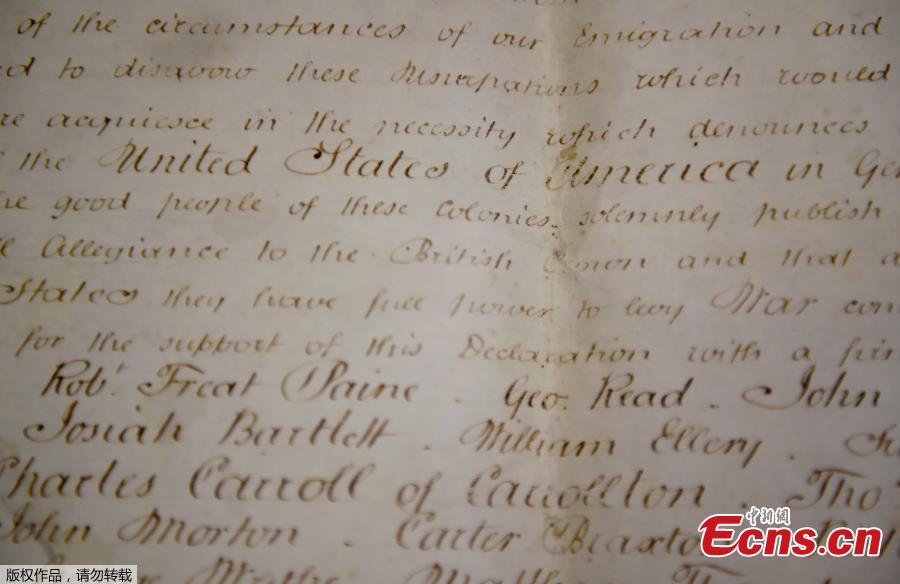 of the circumstances of our Emigration and
d to disavow these Usurpations which would
re acquiesce in the necessity which denounces
the United States of America in Gen
he good people of these Colonies, solemnly publish
ll Allegiance to the British Crown and that a
States they have full power to levy War con
for the support of this Declaration with a fir
Robt Treat Paine . Geo. Read . John
Josiah Bartlett . William Ellery .
Charles Carroll of Carrollton . Tho
John Morton . Carter Braxto
中新网
Ecns.cn
版权作品，请勿转载